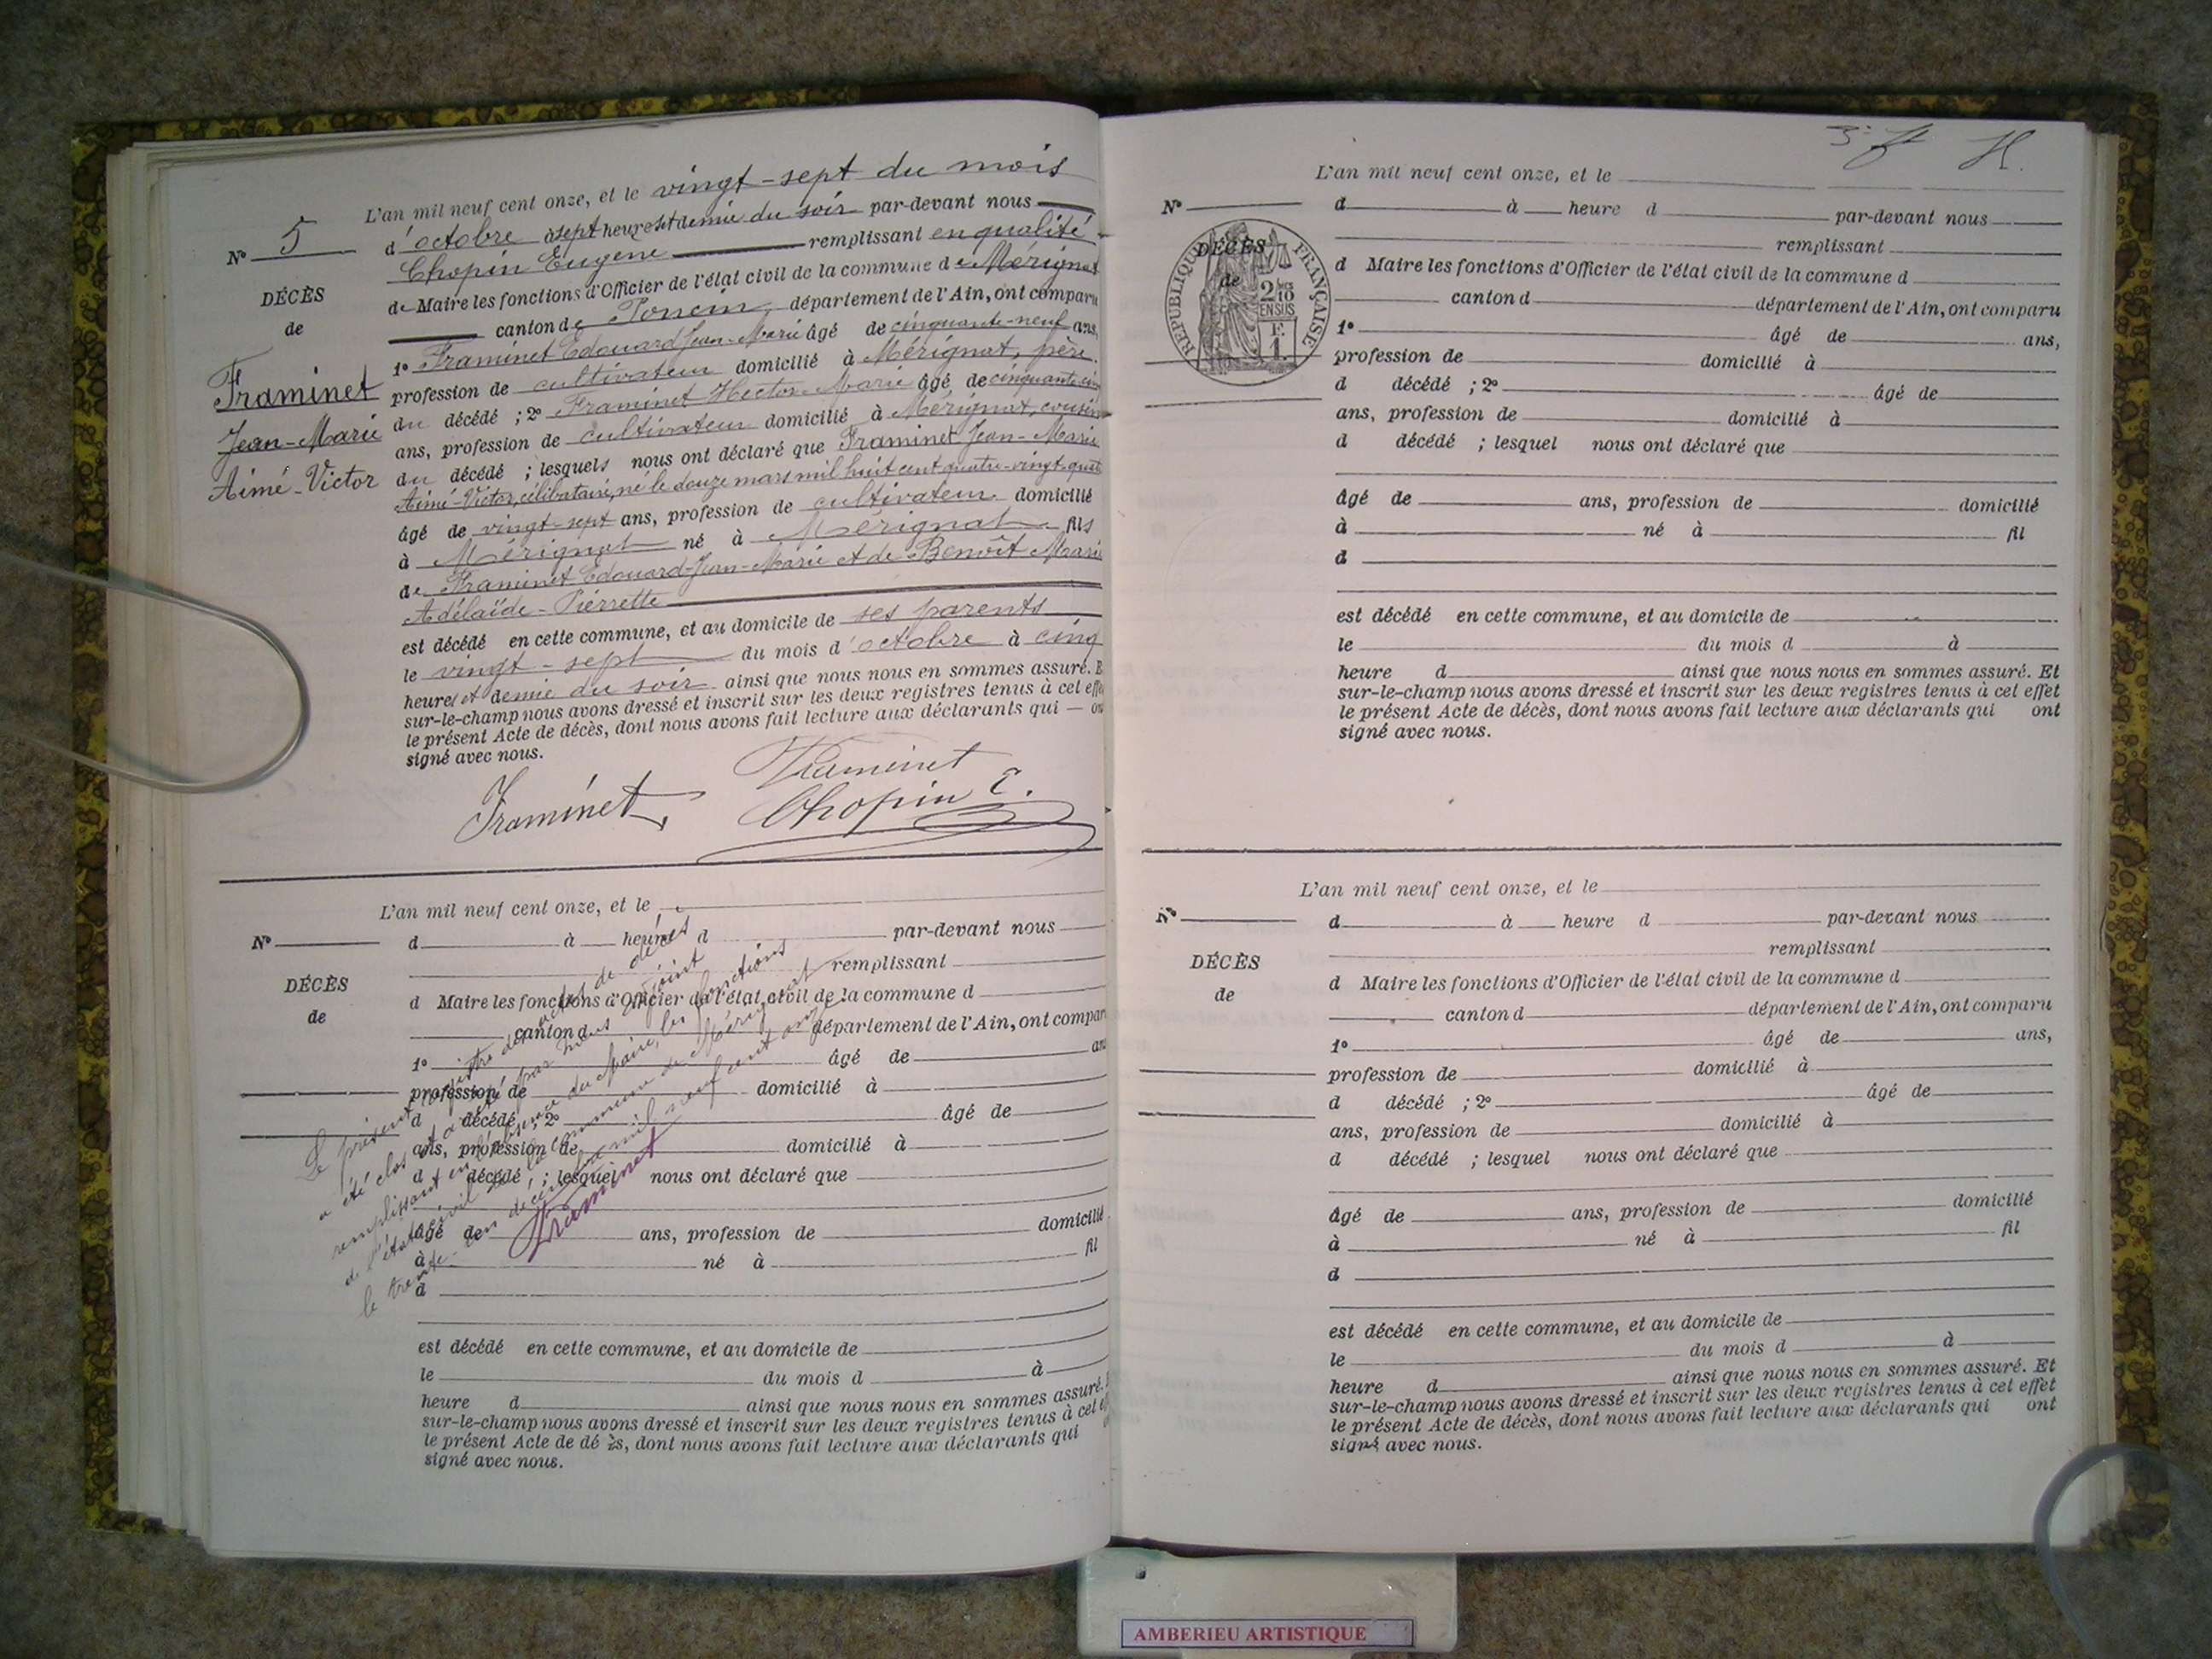 L'an mil neuf cent onze, et le vingt-sept du mois
Nº 5
d'octobre à sept heures et demie du soir par-devant nous
Chopin Eugène remplissant en qualité
de Maire les fonctions d'Officier de l'état civil de la commune de Mérignat
canton de Poncin, département de l'Ain, ont comparu
1º Framinet Edouard Jean-Marie âgé de cinquante-neuf ans,
profession de cultivateur domicilié à Mérignat, père
du décédé ; 2º Framinet Hector Marie âgé de cinquante-cinq
ans, profession de cultivateur domicilié à Mérignat, cousin
du décédé ; lesquels nous ont déclaré que Framinet Jean-Marie
Aimé-Victor, célibataire, né le douze mars mil huit cent quatre-vingt-quatre
âgé de vingt-sept ans, profession de cultivateur domicilié
à Mérignat né à Mérignat fils
de Framinet Edouard-Jean-Marie et de Benoît Marie
Adélaïde-Pierrette
est décédé en cette commune, et au domicile de ses parents
le vingt-sept du mois d'octobre à cinq
heures et demie du soir ainsi que nous nous en sommes assuré. E
sur-le-champ nous avons dressé et inscrit sur les deux registres tenus à cet effe
le présent Acte de décès, dont nous avons fait lecture aux déclarants qui — on
signé avec nous.
DÉCÈS
de
Framinet
Jean-Marie
Aimé-Victor
Framinet
Framinet
Chopin E.
L'an mil neuf cent onze, et le
Nº
d à heure d par-devant nous
remplissant
d Maire les fonctions d'Officier de l'état civil de la commune d
canton d département de l'Ain, ont compar
1º âgé de an
profession de domicilié à
d décédé ; 2º âgé de
ans, profession de domicilié à
d décédé ; lesquel nous ont déclaré que
âgé de ans, profession de domicilié
à né à fil
d
est décédé en cette commune, et au domicile de
le du mois d à
heure d ainsi que nous nous en sommes assuré.
sur-le-champ nous avons dressé et inscrit sur les deux registres tenus à cet
le présent Acte de dé ès, dont nous avons fait lecture aux déclarants qui
signé avec nous.
DÉCÈS
de
Le présent registre des actes de décès
a été clos et arrêté par nous adjoint
remplissant en l'absence du Maire, les fonctions
de l'état civil de la commune de Mérignat
le trente-un décembre mil neuf cent onze
Framinet
3e ft
L'an mil neuf cent onze, et le
Nº
d à heure d par-devant nous
remplissant
d Maire les fonctions d'Officier de l'état civil de la commune d
canton d département de l'Ain, ont comparu
1º âgé de ans,
profession de domicilié à
d décédé ; 2º âgé de
ans, profession de domicilié à
d décédé ; lesquel nous ont déclaré que
âgé de ans, profession de domicilié
à né à fil
d
est décédé en cette commune, et au domicile de
le du mois d à
heure d ainsi que nous nous en sommes assuré. Et
sur-le-champ nous avons dressé et inscrit sur les deux registres tenus à cet effet
le présent Acte de décès, dont nous avons fait lecture aux déclarants qui ont
signé avec nous.
DÉCÈS
de
RÉPUBLIQUE FRANÇAISE
2/10
EN SUS
F.
1.
L'an mil neuf cent onze, et le
Nº
d à heure d par-devant nous
remplissant
d Maire les fonctions d'Officier de l'état civil de la commune d
canton d département de l'Ain, ont comparu
1º âgé de ans,
profession de domicilié à
d décédé ; 2º âgé de
ans, profession de domicilié à
d décédé ; lesquel nous ont déclaré que
âgé de ans, profession de domicilié
à né à fil
d
est décédé en cette commune, et au domicile de
le du mois d à
heure d ainsi que nous nous en sommes assuré. Et
sur-le-champ nous avons dressé et inscrit sur les deux registres tenus à cet effet
le présent Acte de décès, dont nous avons fait lecture aux déclarants qui ont
signé avec nous.
DÉCÈS
de
AMBERIEU ARTISTIQUE